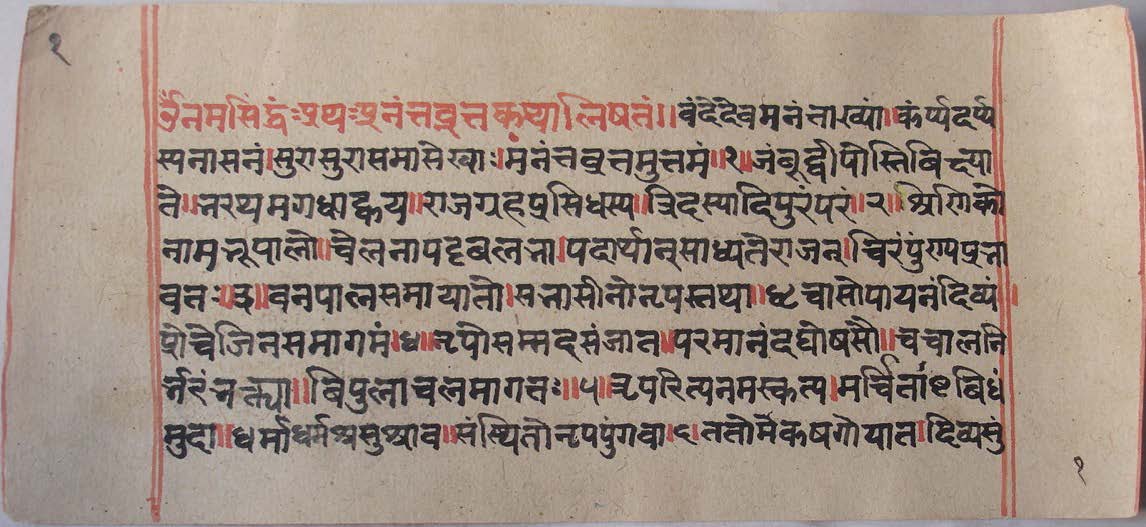 १
ॐनमसिद्धं॥अथअनंतव्रतकथालिषतं॥वंदेदेवमनंताख्यां।कंर्प्पदर्प्प
स्पनासनं।सुरासुरासमासेख्याः।मंनंतव्रतमुत्तमं॥१॥जंबूद्वीपोस्तिविख्या
ते॥भरथमगधाह्वय॥राजगृहप्रसिधस्य॥त्रिदस्यादिपुरंपरं॥२॥श्रेणिको
नामभूपालो॥चेलनापदृबलभा।पदार्थान्साध्यतेराजन्।चिरंपुंण्यप्रभा
वत॥३॥वनपालसमायातो।सभासीनोनृपस्तथा॥धृचासोपायनंदिव्यं॥
प्रोचैजिनसमागमं॥४॥नृपोसम्मदसंजात॥परमानंदघोषसौ॥चचालनि
र्भरंभक्त्या॥विपुलाचलमागतः॥५॥त्रृपरित्यनमस्कत्य।मर्चितांष्टबिधं
मुदा॥धर्माधर्मश्चसुश्राव॥संस्थितोनृपपुंगवा।६।ततोर्मेकषगोयात।दिव्यसुं
१